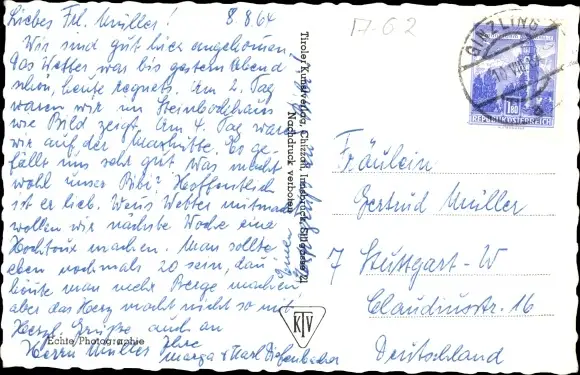 Liebes Frl. Müller! 8.8.64
Wir sind gut hier angekommen.
Das Wetter war bis gestern Abend
schön, heute regnets. Am 2. Tag
waren wir im Steinbockhaus
wie Bild zeigt. Am 4. Tag waren
wir auf der Maxhütte. Es ge-
fällt uns sehr gut. Was macht
wohl unser Bibi? Hoffentlich
ist er lieb. Wenns Wetter mitmacht
wollen wir nächste Woche eine
Hochtour machen. Man sollte
eben nochmals 20 sein, dann
könnte man mehr Berge machen,
aber das Herz macht nicht so mit.
Herzl. Grüße auch an
Herrn Müller Ihre
Marga u Karl Diefenbacher
Echte Photographie
Tiroler Kunstverlag, Chizzali, Innsbruck
Nachdruck verboten
KTV
17-62
GINZLING
1.80
REPUBLIK ÖSTERREICH
Fräulein
Gertrud Müller
7 Stuttgart-W
Claudiusstr. 16
Deutschland